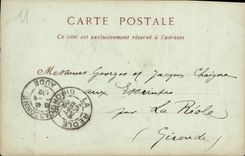 11
CARTE POSTALE
Ce côté est exclusivement réservé à l'adresse
Messieurs Georges et Jacques Chaigne
aux Esseintes
par La Réole
(Gironde)
LA RÉOLE
GIRONDE
CARCASSONNE
AUDE